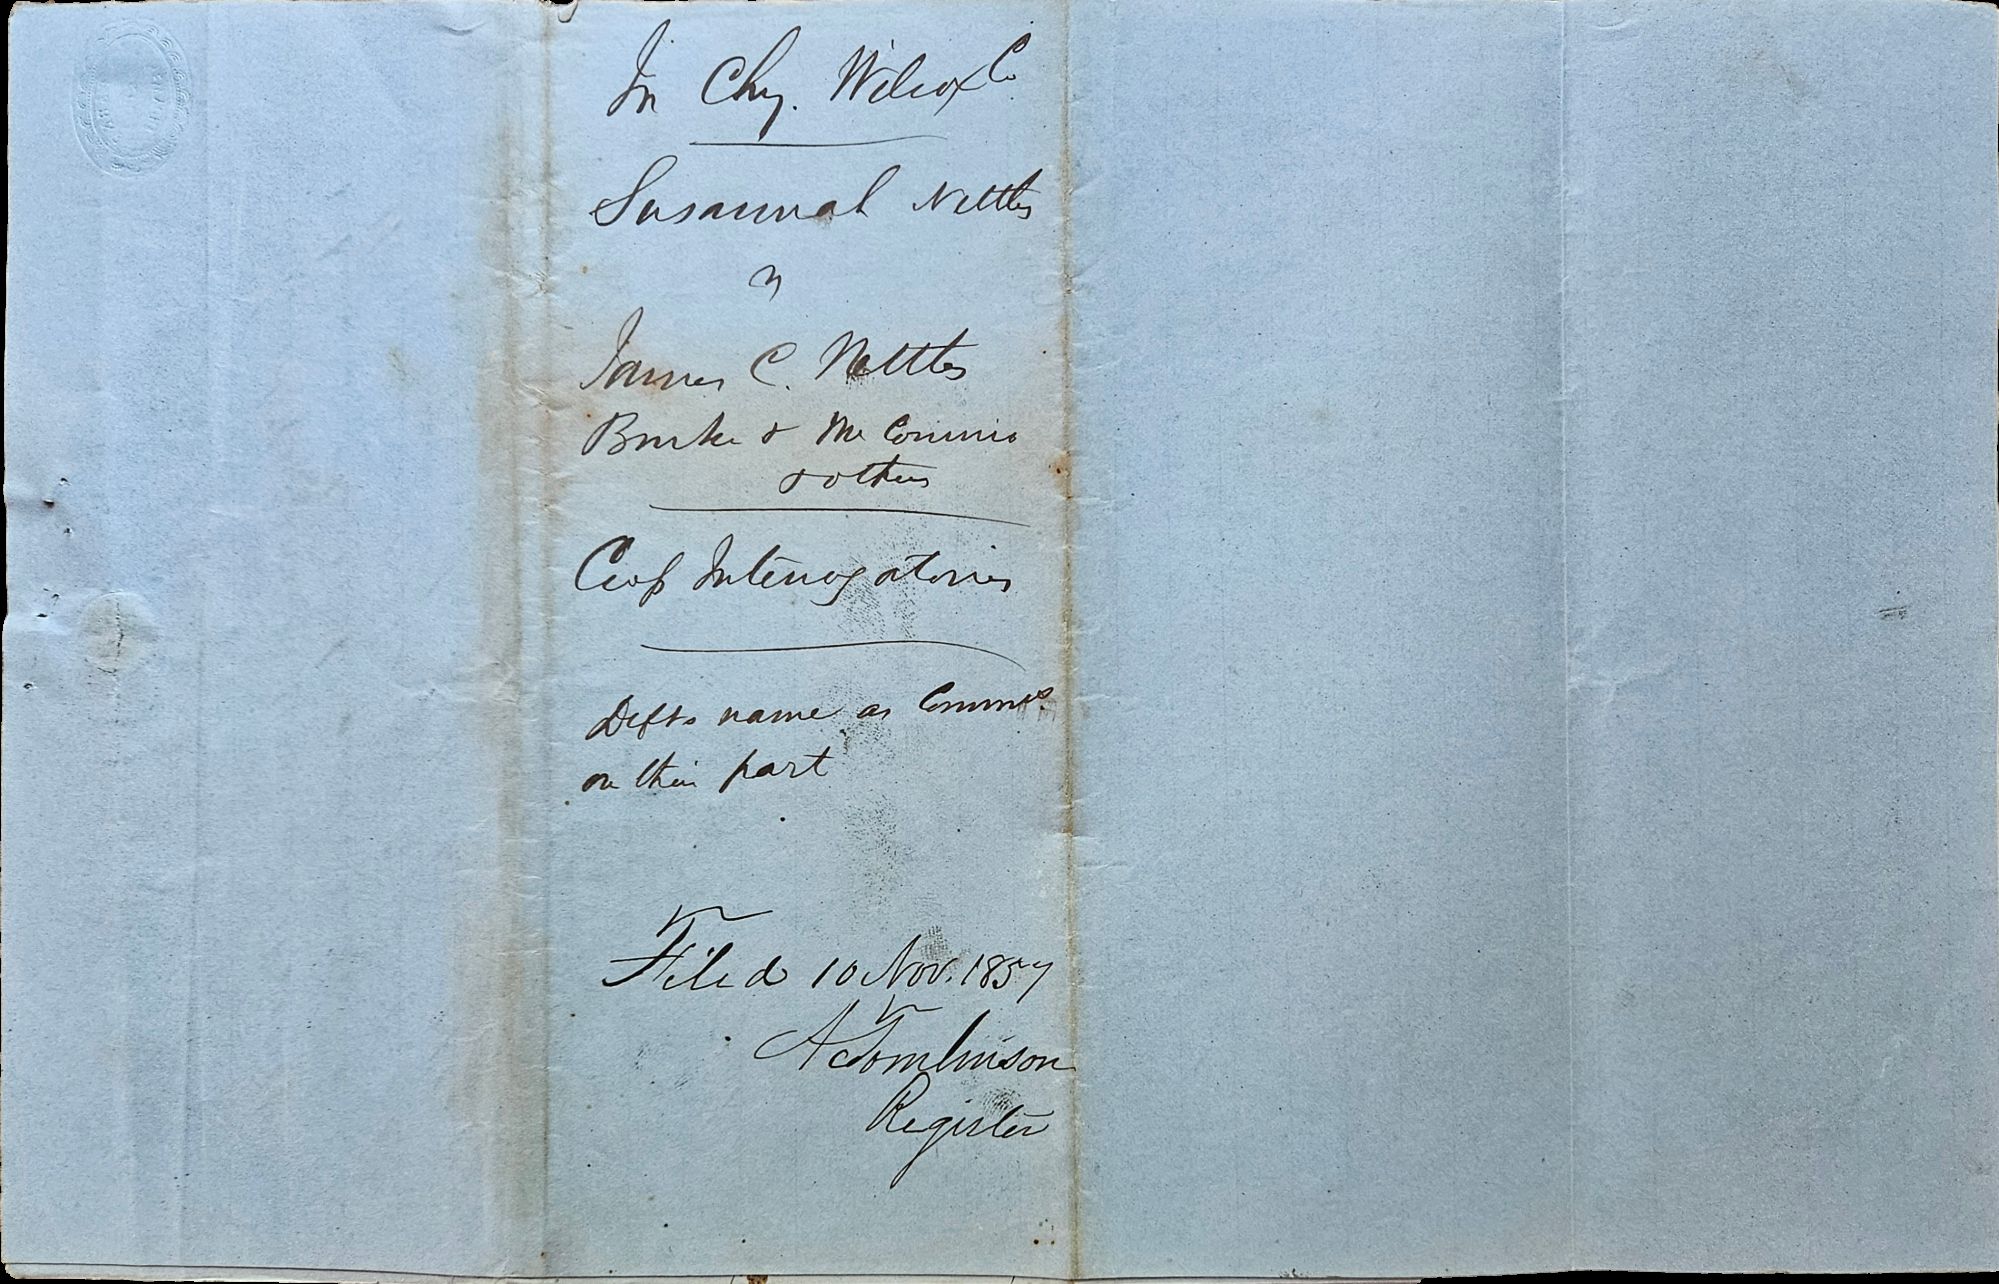 In Chy. Wilcox Co
Susannah Nettles
vs
James C. Nettles
Burke & McCommis
& others
Cross Interrogatories
Defts name as Commrs.
on their part
Filed 10 Nov. 1857
A C Tomlinson
Register